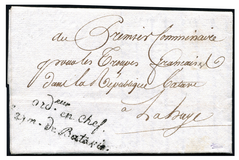 au Premier Commissaire
pour les Troupes françaises
dans la République Batave
à
La haye
ord.eur
en Chef
arm. de Batavie